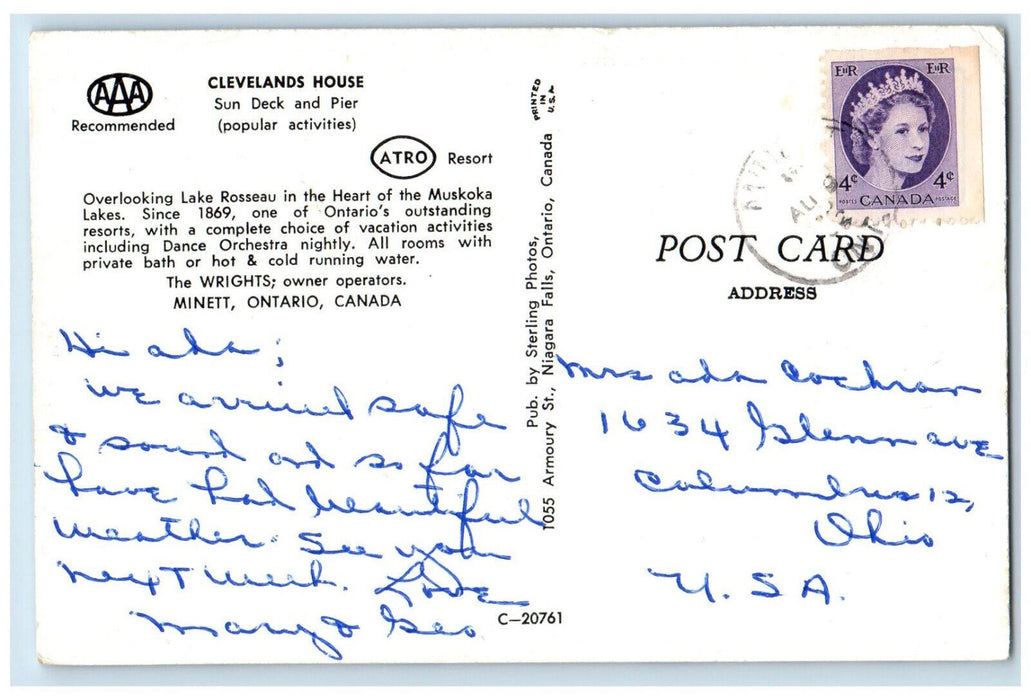 AAA
Recommended
CLEVELANDS HOUSE
Sun Deck and Pier
(popular activities)
ATRO Resort
Overlooking Lake Rosseau in the Heart of the Muskoka
Lakes. Since 1869, one of Ontario's outstanding
resorts, with a complete choice of vacation activities
including Dance Orchestra nightly. All rooms with
private bath or hot & cold running water.
The WRIGHTS; owner operators.
MINETT, ONTARIO, CANADA
Hi Ada;
We arrived safe
& sound and so far
have had beautiful
weather. See you
next week. Love
Mary & Geo
Pub. by Sterling Photos,
1055 Armoury St., Niagara Falls, Ontario, Canada
PRINTED
IN
U.S.A.
C-20761
EIIR EIIR
4¢ 4¢
POSTES CANADA POSTAGE
AU 9
ONT
POST CARD
ADDRESS
Mrs Ada Cochran
1634 Glenn Ave
Columbus 12,
Ohio
U.S.A.